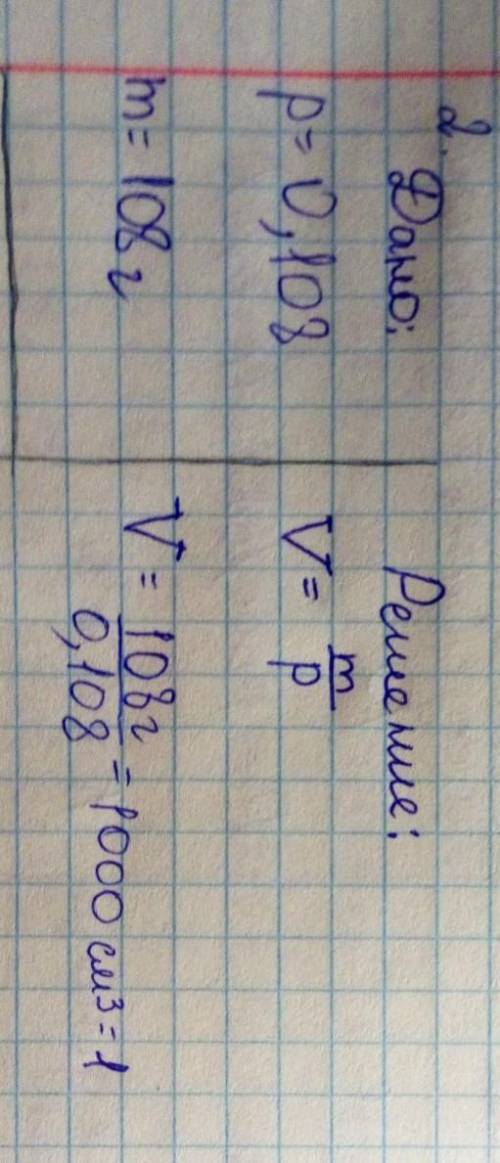 2. Дано:
p = 0,108
m = 108 г
Решение:
V = m/p
V = 108 г/0,108 = 1000 см³ = 1